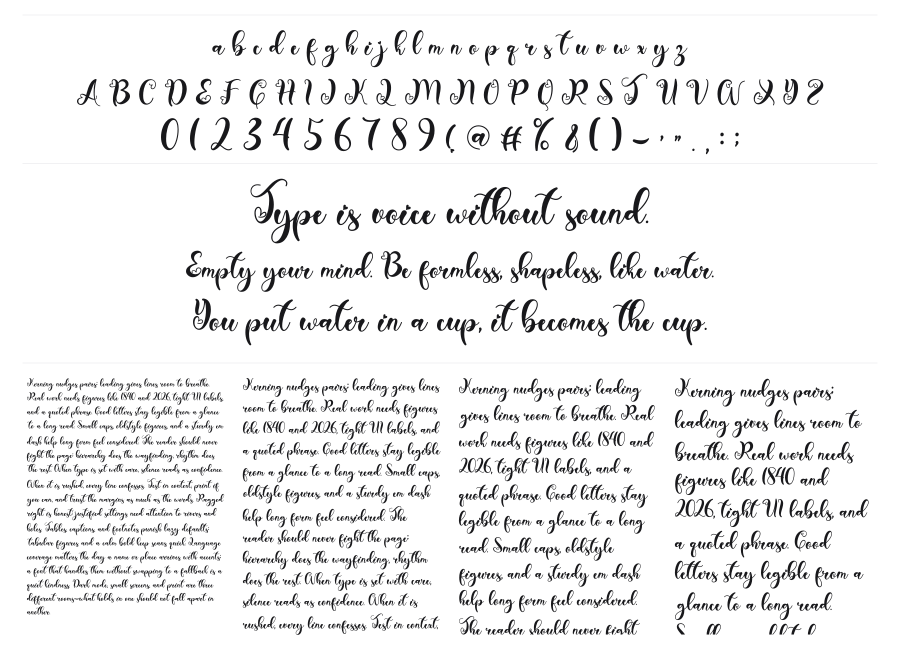 a b c d e f g h i j k l m n o p q r s t u v w x y z
A B C D E F G H I J K L M N O P Q R S T U V W X Y Z
0 1 2 3 4 5 6 7 8 9 ( @ # % & ( ) – ' " . , : ;
Type is voice without sound.
Empty your mind. Be formless, shapeless, like water.
You put water in a cup, it becomes the cup.
Kerning nudges pairs; leading gives lines room to breathe.
Real work needs figures like 1840 and 2026, tight UI labels,
and a quoted phrase. Good letters stay legible from a glance
to a long read. Small caps, oldstyle figures, and a sturdy em
dash help long form feel considered. The reader should never
fight the page; hierarchy does the wayfinding, rhythm does
the rest. When type is set with care, silence reads as confidence.
When it is rushed, every line confesses. Test in context, print if
you can, and trust the margins as much as the words. Ragged
right is honest; justified settings need attention to rivers and
holes. Tables, captions, and footnotes punish lazy defaults;
tabular figures and a calm bold keep scans quiet. Language
coverage matters the day a name or place arrives with accents;
a font that handles them without swapping to a fallback is a
quiet kindness. Dark mode, small screens, and print are three
different rooms—what holds in one should not fall apart in
another.
Kerning nudges pairs; leading gives lines
room to breathe. Real work needs figures
like 1840 and 2026, tight UI labels, and
a quoted phrase. Good letters stay legible
from a glance to a long read. Small caps,
oldstyle figures, and a sturdy em dash
help long form feel considered. The
reader should never fight the page;
hierarchy does the wayfinding, rhythm
does the rest. When type is set with care,
silence reads as confidence. When it is
rushed, every line confesses. Test in context,
Kerning nudges pairs; leading
gives lines room to breathe. Real
work needs figures like 1840 and
2026, tight UI labels, and a
quoted phrase. Good letters stay
legible from a glance to a long
read. Small caps, oldstyle
figures, and a sturdy em dash
help long form feel considered.
The reader should never fight
Kerning nudges pairs;
leading gives lines room to
breathe. Real work needs
figures like 1840 and
2026, tight UI labels, and
a quoted phrase. Good
letters stay legible from a
glance to a long read.